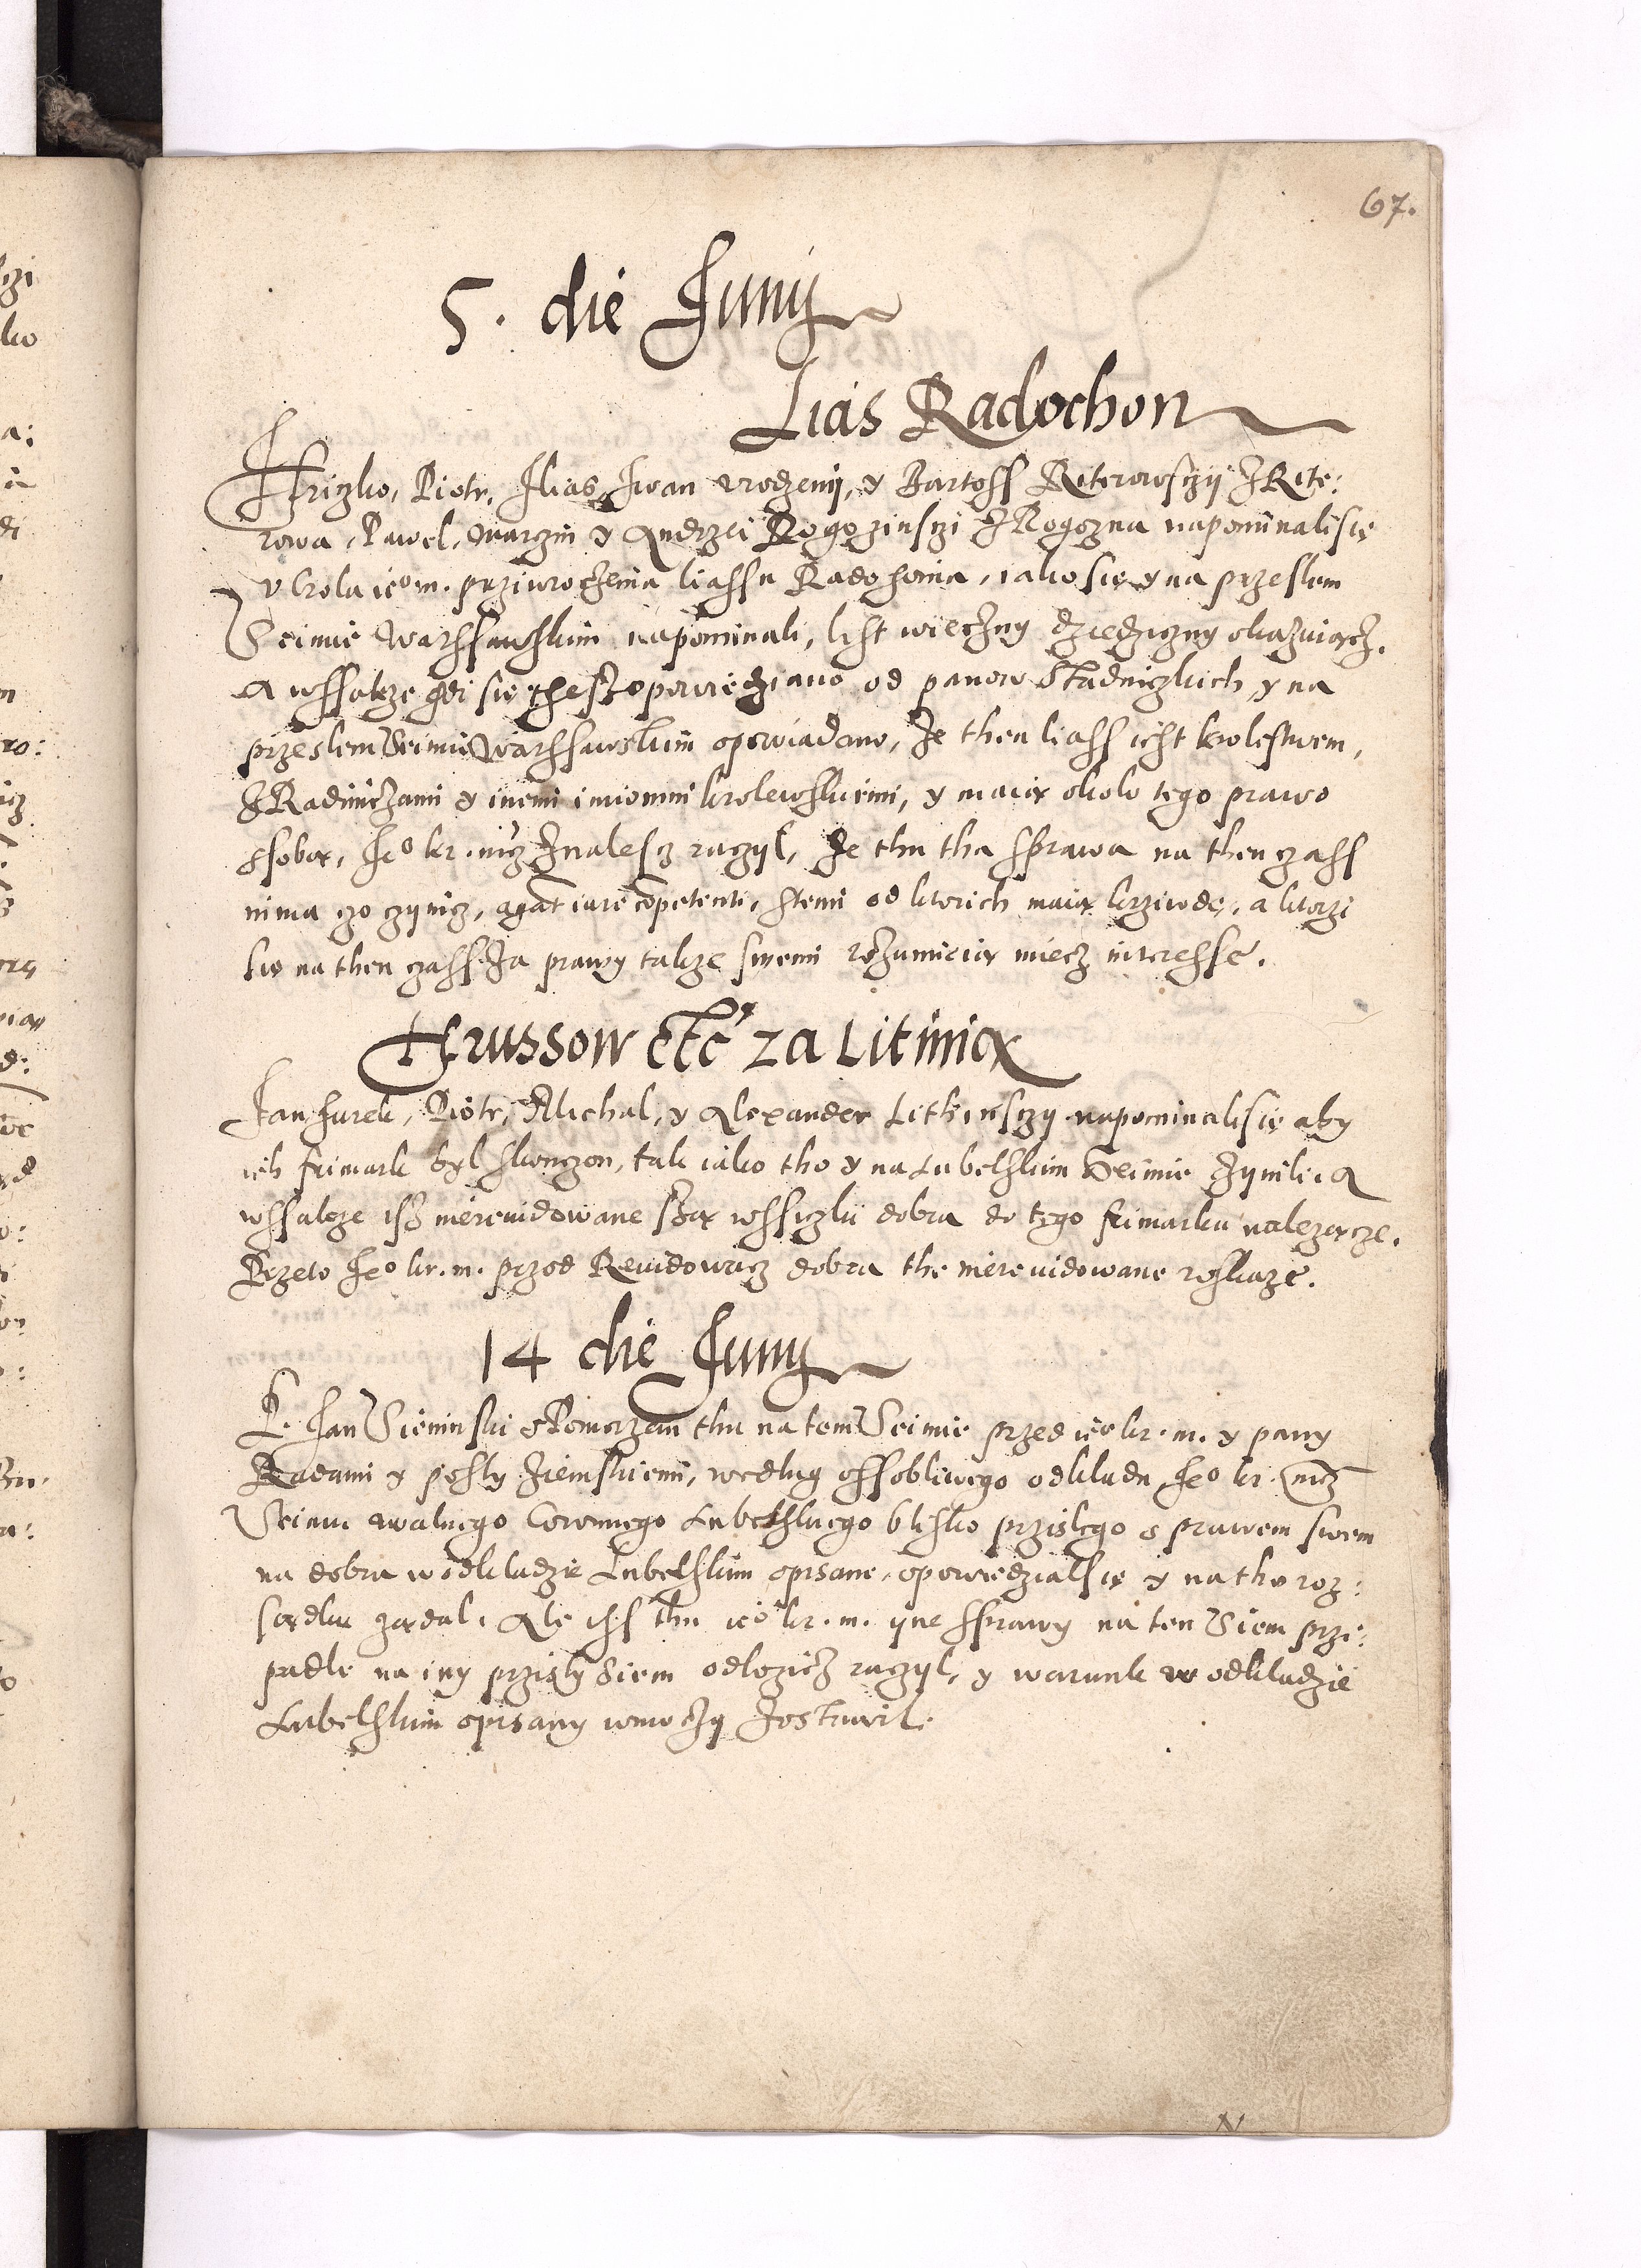 67.
5. die Junij
Lias Radochon
Hriczko, Piotr, Ilias, Iwan vrodzeny, y Bartoss Riterowsczÿ Z Rite:
rowa, Pawel, Marczin y Andrzei Rogozinsczi Z Rogozna napominali się
v Crola ieo m. prziwroczenia liassu Radochonia, iako się y na przeslem
Seimie Warssawskim napominali, list wieczny dziedziczny okazuiącz.
A wssakze gdi się thesz opowiedziano od panow Stadniczkich, y na
przeslem Seimie Warssawskim opowiadano, Ze then liass iest krolestwem,
Z Radimczami y inemi imiommi krolewskiemi, y maią okolo tego prawo
ssobą, Jeo kr. mcz Znalescz raczyl, Ze thu tha sprawa na then czass
nima czo czynicz, agāt iure cōpetenti, stemi od ktorich maią krziwdę, a ktorzi
się na then czass Za prawy takze swemi rozumieią miecz interesse.
Hrussow etc za Litinią
Jan Jurek, Piotr, Michal, y Alexander Lithinsczy napominali się aby
ich frimark byl skonczon, tak iako tho y na Lubelskim Seimie Zynili. A
wssakze isz nierewidowane są wssiczki dobra do tego frimarku należącze.
Przeto Jeo kr. m. przod Rewidowacz dobra the nierewidowane roskaze.
14 die Junij
P. Jan Sieninski s Pomorzan thu na tem Seimie przed ieo kr. m. y pany
Radami y posly Ziemskiemi, wedlug ossobliwego odkladu Jeo kr. mcz
Seimu walnego Coronnego Lubelskiego blisko przislego s prawem swem
na dobra w odkladzie Lubelskim opisane, opowiedzial się y na tho roz:
sądku ządal. Ale iss thu ieo kr. m. ÿne sprawy na ten Siem prze:
padle na iny przisly Siem odlozicz raczyl, y warunk w odkladzie
Lubelskim opisany wmoczy Zostawil.